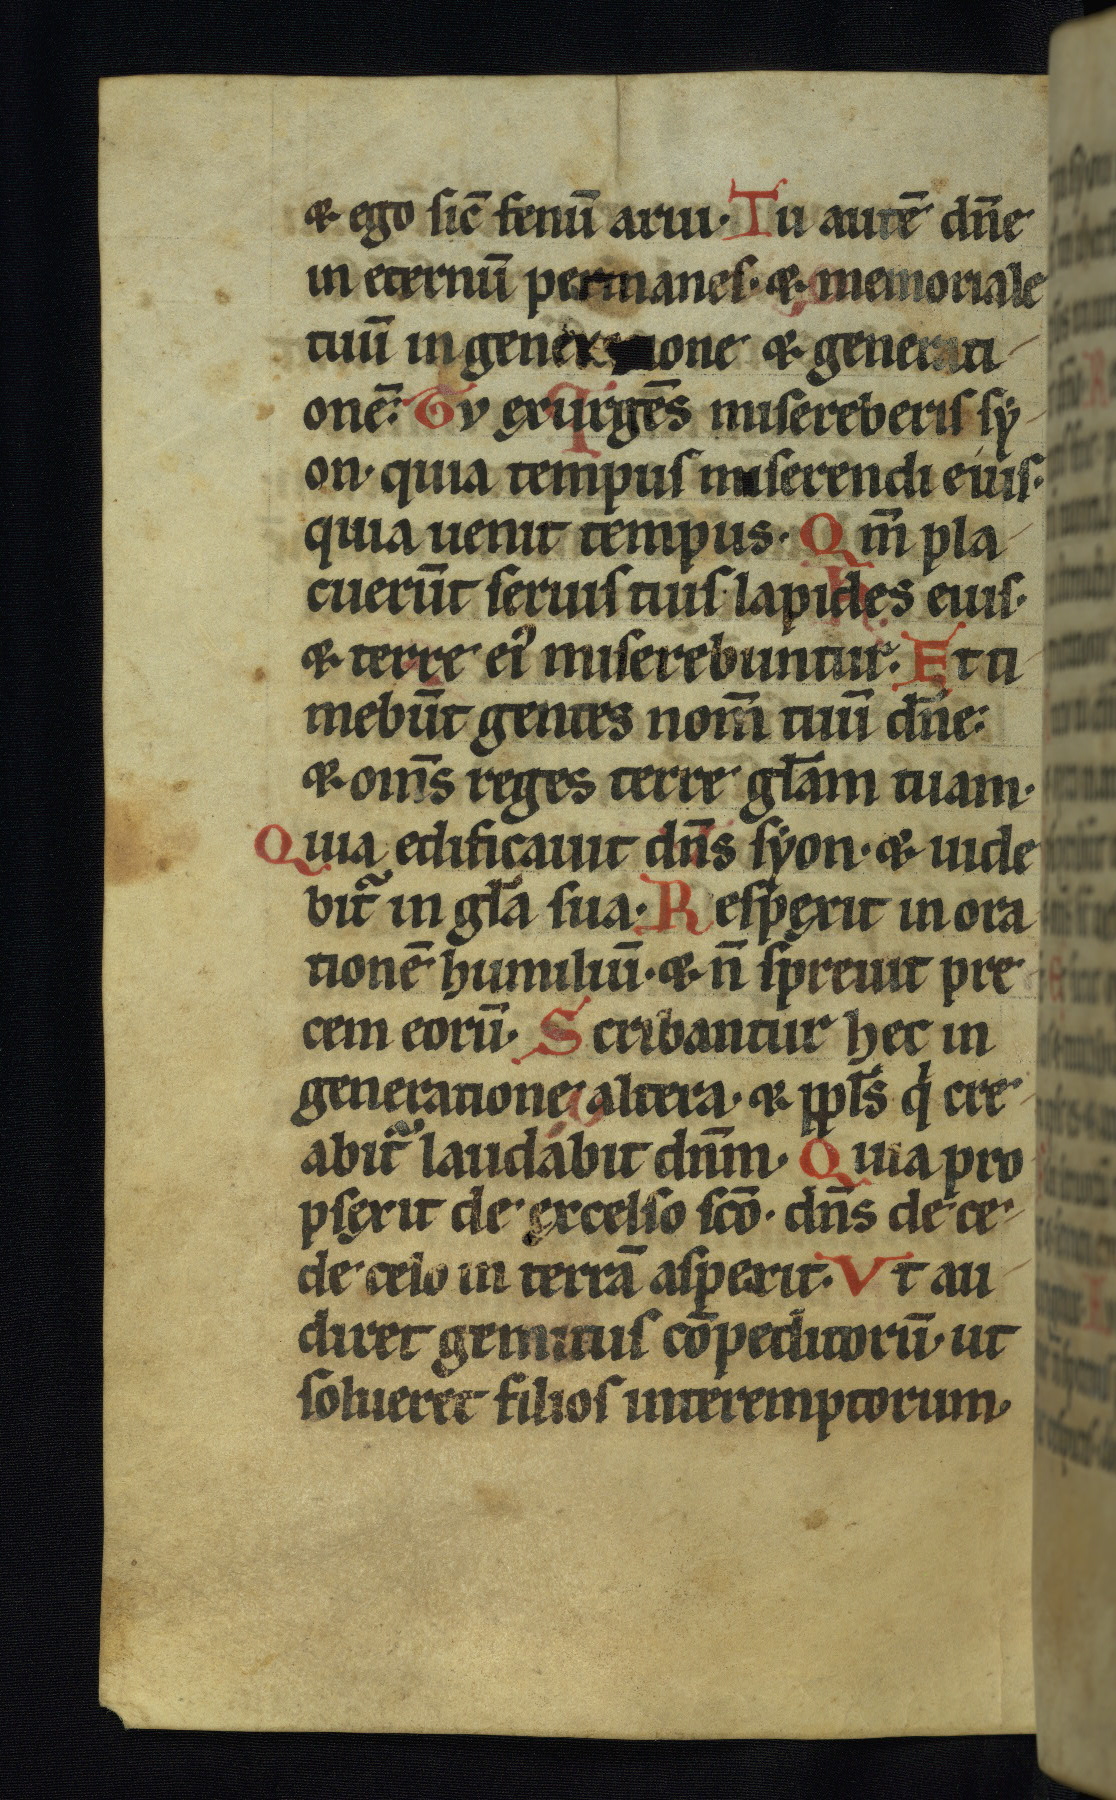 ⁊ ego sic̄ fenū arui. Tu autē dn̄e
in eternū permanes. ⁊ memoriale
tuū in generatione ⁊ generati
onē. Tv exurgēs misereberis sẏ
on. quia tempus miserendi eius.
quia uenit tempus. Qm̄ pla
cuerūt seruis tuis lapides eius.
⁊ terre ei᾿ miserebuntur. Et ti
mebūt gentes nom̄ tuū dn̄e.
⁊ om̄s reges terre gl̄am tuam.
Quia edificauit dn̄s sẏon. ⁊ uide
bit᷑ in gl̄a sua. Respexit in ora
tionē humiliū. ⁊ n̄ spreuit pre
cem eorū. Scribantur hec in
generatione altera. ⁊ ppl̄s qͥ cre
abit᷑ laudabit dn̄m. Quia pro
psexit de excelso scō. dn̄s de ce
de celo in terrā aspexit. Vt au
diret gemitus cōpeditorū. ut
solueret filios interemptorum.